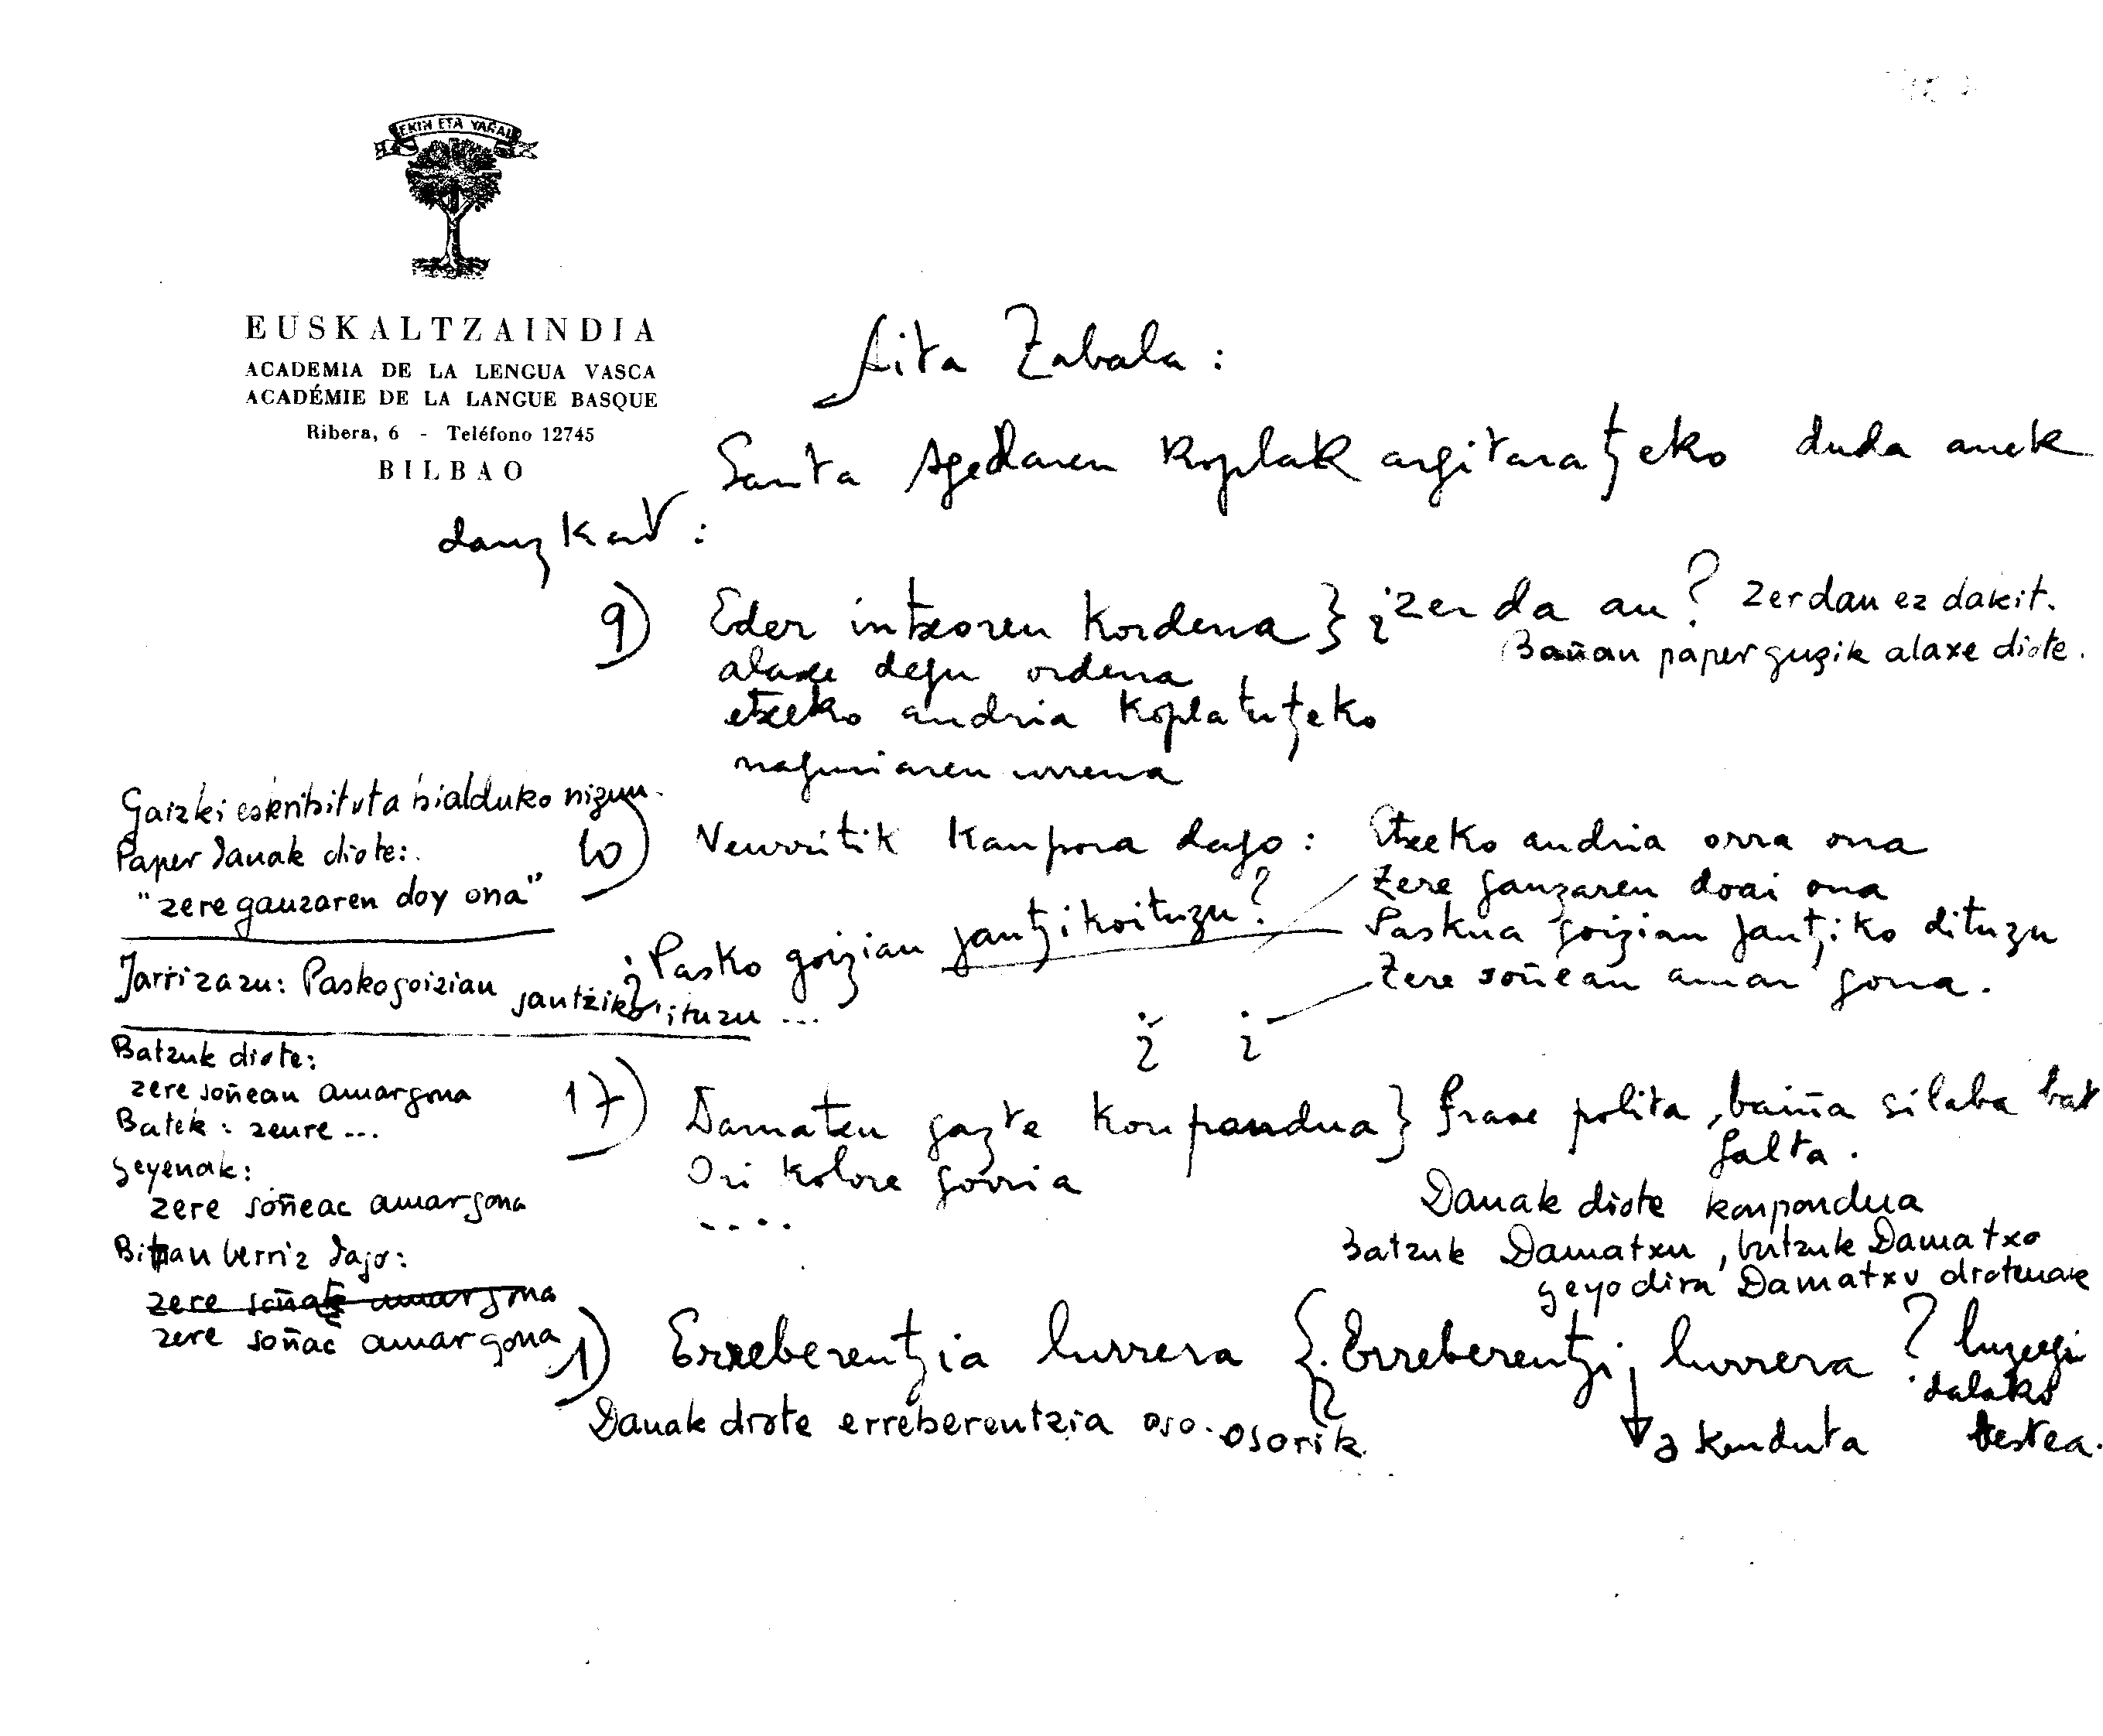 EKIN ETA YARAI
EUSKALTZAINDIA
ACADEMIA DE LA LENGUA VASCA
ACADÉMIE DE LA LANGUE BASQUE
Ribera, 6 - Teléfono 12745
BILBAO
Aita Zabala:
Santa Agedaren koplak argitaratzeko duda auek
dauzkat:
9) Eder intxoren kordena } ¿zer da au? Zer dan ez dakit.
Bañan paper guzik alaxe diote.
alaxe degu ordena
etxeko andria koplatutzeko
nagusiaren urrena
Gaizki eskribituta bialduko nizun.
Paper danak diote:
"zere gauzaren doy ona"
10) Neurritik kanpora dago: Etxeko andria orra ona
Zere gauzaren doai ona
¿Pasko goizian jantzikoituzu? Paskua goizian jantziko dituzu
Zere soñean amar gona.
¿ ¿
Jarrizazu: Pasko goizian jantziko'ituzu ...
Batzuk diote:
zere soñean amargona
Batek: zeure ...
geyenak:
zere soñeac amargona
Bitan berriz dago:
zere soñac amargona
17) Damatxu gazte konpondua } frase polita, baiña silaba bat
falta.
Ori kolore gorria
....
Danak diote konpondua
Batzuk Damatxu, batzuk Damatxo
geyo dira Damatxu diotenak
1) Erreberentzia lurrera { ¿Erreberentzi lurrera? luzeegi
dalako
a kenduta bestea.
Danak diote erreberentzia oso-osorik.